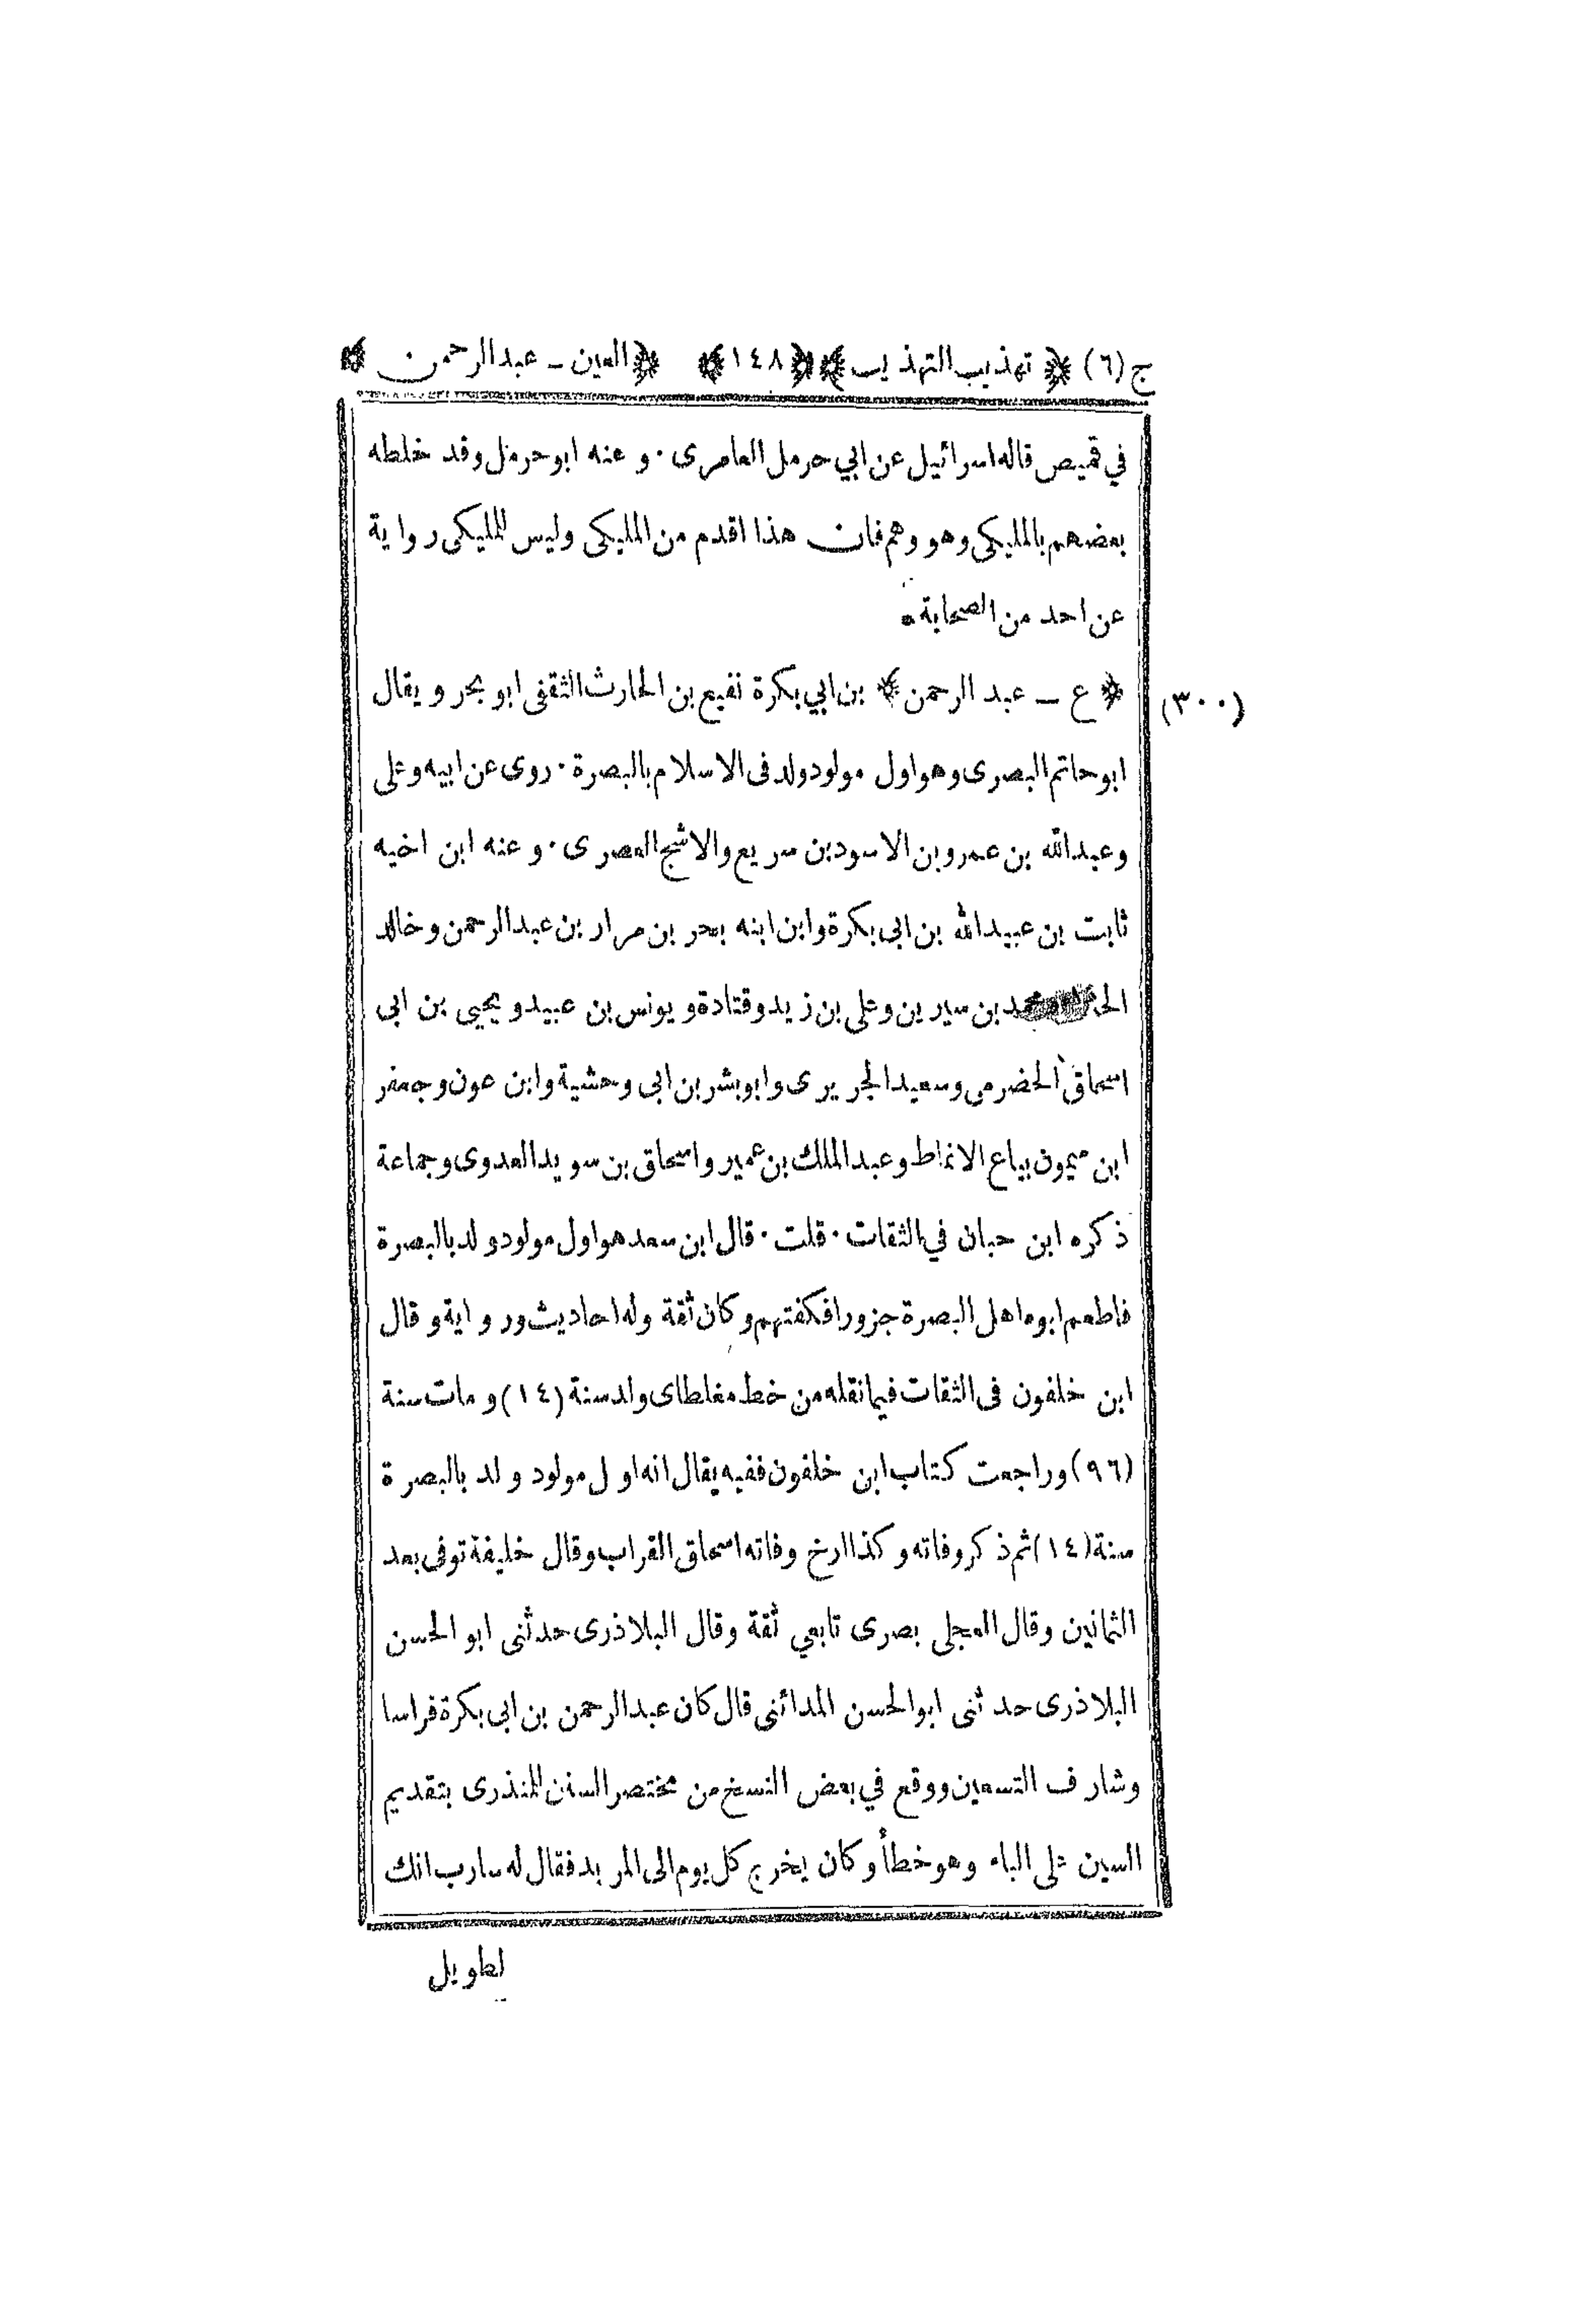 ج (٦) ﴿ تهذيب التهذيب ﴾ ﴿ ١٤٨ ﴾ ﴿ العين ـ عبد الرحمن ﴾
في قميص قاله اسرائيل عن ابي حرمل العامرى · و عنه ابو حرمل وقد خلطه
بعضهم بالمليكى وهو وهم فان هذا اقدم من المليكى وليس للمليكى رواية
عن احد من الصحابة .
(٣٠٠) ﴿ ع ـ عبد الرحمن ﴾ بن ابي بكرة نفيع بن الحارث الثقفى ابو بحر و يقال
ابو حاتم البصرى وهو اول مولود ولد فى الاسلام بالبصرة · روى عن ابيه وعلى
وعبدالله بن عمرو بن الاسود بن سريع والاشج العصرى · و عنه ابن اخيه
ثابت بن عبيدالله بن ابى بكرة وابن ابنه بحر بن مرار بن عبدالرحمن وخالد
محمد بن سيرين وعلى بن زيد وقتادة و يونس بن عبيد و يحيى بن ابى
اسحاق الحضرمى وسعيد الجريرى وابو بشر بن ابى وحشية وابن عون وجعفر
ابن ميمون بياع الانماط وعبد الملك بن عمير واسحاق بن سويد العدوى وجماعة
ذكره ابن حبان في الثقات · قلت · قال ابن سعد هو اول مولود ولد بالبصرة
فاطعم ابوه اهل البصرة جزورا فكفتهم وكان ثقة وله احاديث ورواية و قال
ابن خلفون فى الثقات فيما نقله من خط مغلطاى ولد سنة (١٤) و مات سنة
(٩٦) وراجعت كتاب ابن خلفون ففيه يقال انه اول مولود ولد بالبصرة
سنة (١٤) ثم ذكر وفاته وكذا ارخ وفاته اسحاق القراب وقال خليفة توفى بعد
الثمانين وقال العجلى بصرى تابعي ثقة وقال البلاذرى حدثنى ابو الحسن
البلاذرى حدثنى ابوالحسن المدائنى قال كان عبدالرحمن بن ابى بكرة فراسا
وشارف التسعين ووقع في بعض النسخ من مختصر السنن للمنذرى بتقديم
السين على الباء وهو خطأ وكان يخرج كل يوم الى المربد فقال له سارب انك
لطويل